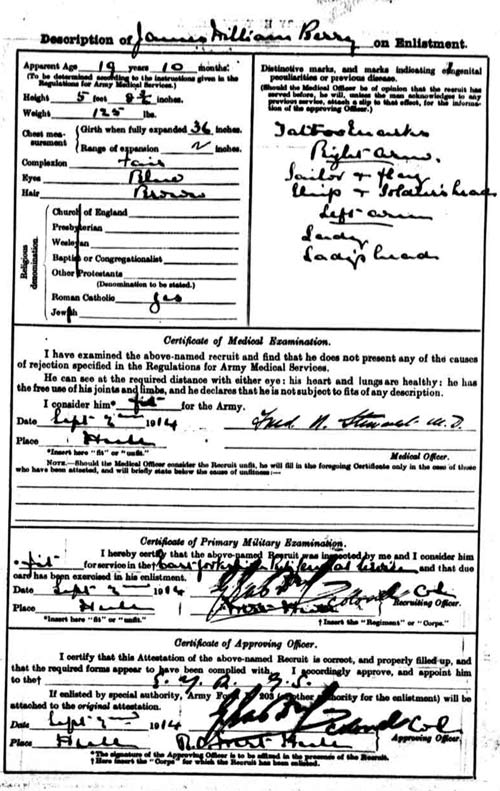 Description of James William Berry on Enlistment.
Apparent Age 19 years 10 months.
(To be determined according to the instructions given in the
Regulations for Army Medical Services.)
Height 5 feet inches.
Weight 125 lbs.
Chest mea-
surement
Girth when fully expanded 36 inches.
Range of expansion 2 inches.
Complexion Fair
Eyes Blue
Hair Brown
Religious
denomination.
Church of England
Presbyterian
Wesleyan
Baptist or Congregationalist
Other Protestants
(Denomination to be stated.)
Roman Catholic yes
Jewish
Distinctive marks, and marks indicating congenital
peculiarities or previous disease.
(Should the Medical Officer be of opinion that the recruit has
served before, he will, unless the man acknowledges to any
previous service, attach a slip to that effect, for the informa-
tion of the approving Officer.)
Tattoo marks
Right arm.
Sailor + flag
Ship + head
Left arm
Lady
Lady's head
Certificate of Medical Examination.
I have examined the above-named recruit and find that he does not present any of the causes
of rejection specified in the Regulations for Army Medical Services.
He can see at the required distance with either eye: his heart and lungs are healthy: he has
the free use of his joints and limbs, and he declares that he is not subject to fits of any description.
I consider him* fit for the Army.
Date Sept 2nd 1914
Place
M.D.
Medical Officer.
*Insert here "fit" or "unfit."
NOTE.—Should the Medical Officer consider the Recruit unfit, he will fill in the foregoing Certificate only in the case of those
who have been attested, and will briefly state below the cause of unfitness:—
Certificate of Primary Military Examination.
I hereby certify that the above-named Recruit was inspected by me and I consider him
* fit for service in the† and that due
care has been exercised in his enlistment.
Date Sept 2nd 1914
Place
Colonel
Recruiting Officer.
*Insert here "fit" or "unfit."
† Insert the "Regiment" or "Corps."
Certificate of Approving Officer.
I certify that this Attestation of the above-named Recruit is correct, and properly filled up, and
that the required forms appear to have been complied with. I accordingly approve, and appoint him
to the†
If enlisted by special authority, Army Form B. 203 (or other authority for the enlistment) will be
attached to the original attestation.
Date Sept 2nd 1914
Place
Colonel
Approving Officer.
*The signature of the Approving Officer is to be affixed in the presence of the Recruit.
† Here insert the "Corps" for which the Recruit has been enlisted.